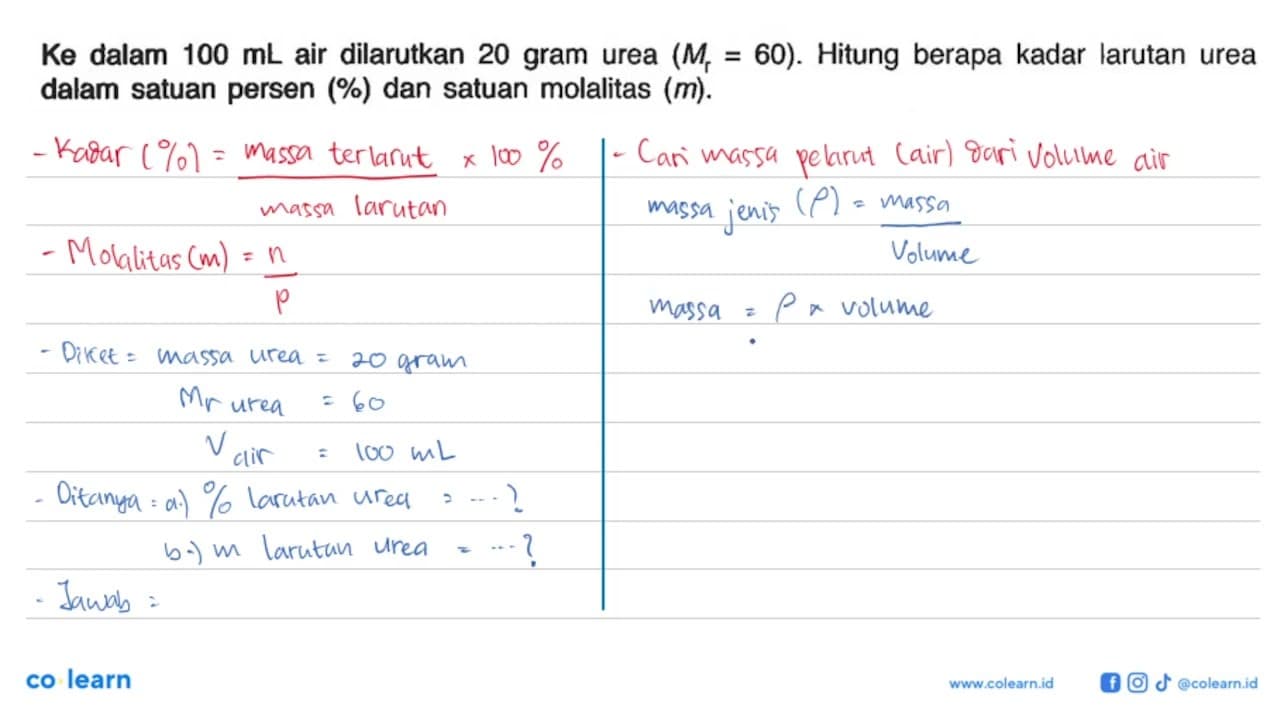 Ke dalam 100 mL air dilarutkan 20 gram urea (Mr = 60). Hitung berapa kadar larutan urea
dalam satuan persen (%) dan satuan molalitas (m).
- Kadar (%) = massa terlarut × 100 %
massa larutan
- Molalitas (m) = n
p
- Diket = massa urea = 20 gram
Mr urea = 60
V air = 100 mL
- Ditanya = a.) % larutan urea = ...?
b.) m larutan urea = ...?
- Jawab =
- Cari massa pelarut (air) dari volume air
massa jenis (ρ) = massa
Volume
massa = ρ × volume
co learn
www.colearn.id
@colearn.id